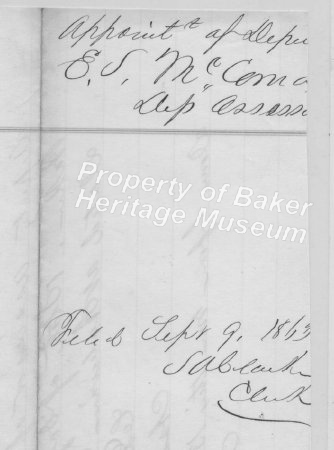 Appointt of Depu
E. S. McComa
Dep" Assess
Property of Baker
Heritage Museum
Filed Sept 9, 1863
S A Clarke
Clerk